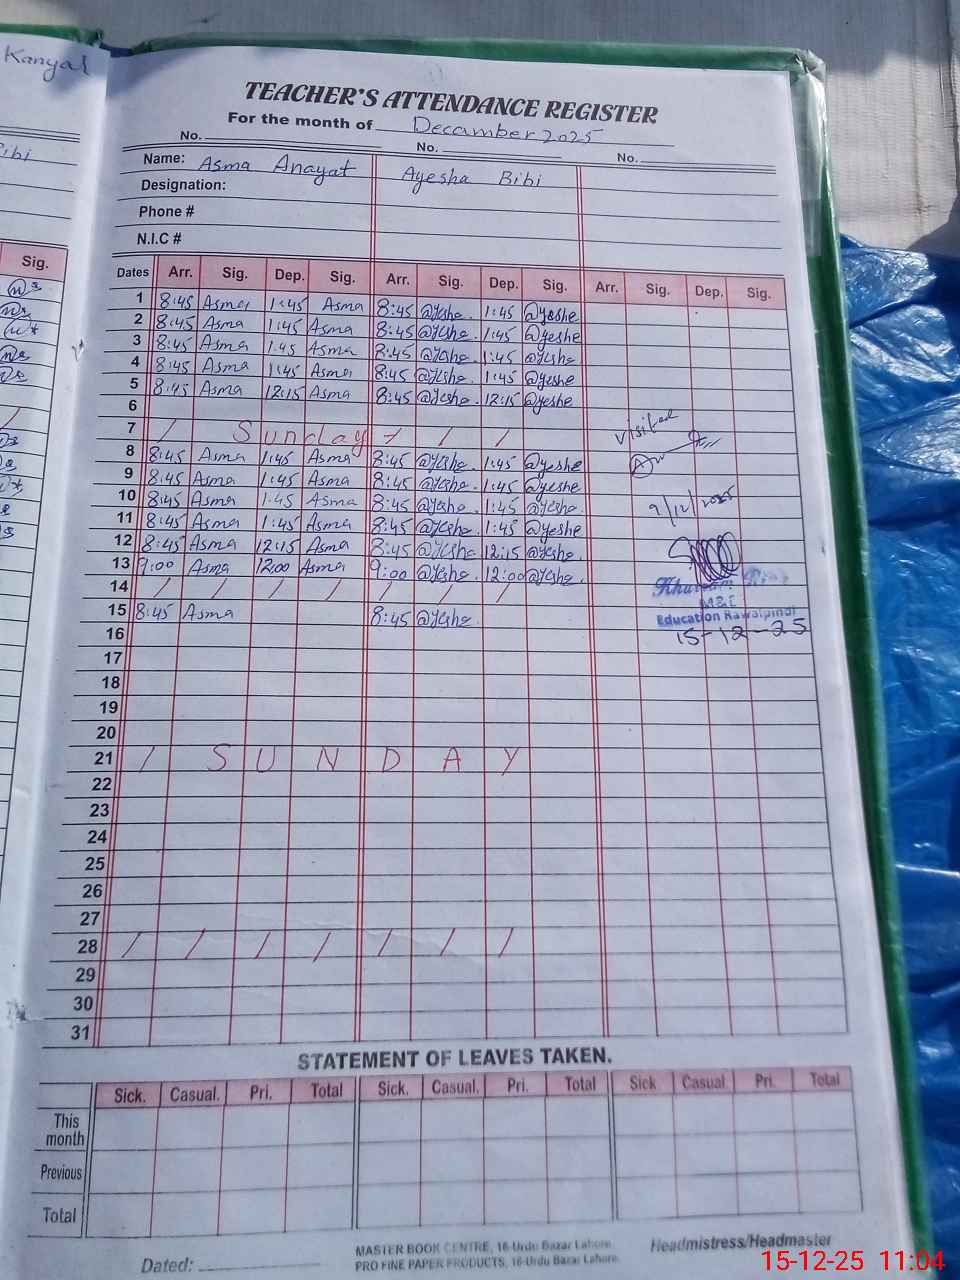 Kanyal
Bibi
Sig.
TEACHER'S ATTENDANCE REGISTER
For the month of December 2025
No. No. No.
Name: Asma Anayat Ayesha Bibi
Designation:
Phone #
N.I.C #
Dates Arr. Sig. Dep. Sig. Arr. Sig. Dep. Sig. Arr. Sig. Dep. Sig.
1 8:45 Asma 1:45 Asma 8:45 @yeshe. 1:45 @yeshe
2 8:45 Asma 1:45 Asma 8:45 @yeshe. 1:45 @yeshe
3 8:45 Asma 1:45 Asma 8:45 @yeshe. 1:45 @yeshe
4 8:45 Asma 1:45 Asma 8:45 @yeshe. 1:45 @yeshe
5 8:45 Asma 12:15 Asma 8:45 @yeshe. 12:15 @yeshe
6
7 / Sunday / / /
visited
8 8:45 Asma 1:45 Asma 8:45 @yeshe. 1:45 @yeshe
9 8:45 Asma 1:45 Asma 8:45 @yeshe. 1:45 @yeshe
10 8:45 Asma 1:45 Asma 8:45 @yeshe. 1:45 @yeshe.
9/12/2025
11 8:45 Asma 1:45 Asma 8:45 @yeshe. 1:45 @yeshe
12 8:45 Asma 12:15 Asma 8:45 @yeshe 12:15 @yeshe.
13 9:00 Asma 12:00 Asma 9:00 @yeshe. 12:00 @yeshe.
14 / / / / / / /
M&E
15 8:45 Asma 8:45 @yeshe.
Education Rawalpindi
15-12-25
16
17
18
19
20
21 / SUNDAY
22
23
24
25
26
27
28 / / / / / / /
29
30
31
STATEMENT OF LEAVES TAKEN.
Sick. Casual. Pri. Total Sick. Casual. Pri. Total Sick Casual. Pri. Total
This month
Previous
Total
Dated:
MASTER BOOK CENTRE, 16-Urdu Bazar Lahore.
PRO FINE PAPER PRODUCTS, 16-Urdu Bazar Lahore.
Headmistress/Headmaster
15-12-25 11:04